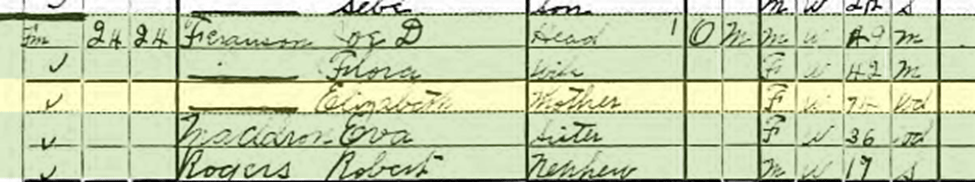 Sebe Son M W S
Fm 24 24 Ferguson Joe D Head 1 O M M W 49 M
Flora Wife F W 42 M
Elizabeth Mother F W Wd
Maddron Eva Sister F W 36 Wd
Rogers Robert Nephew M W 17 S